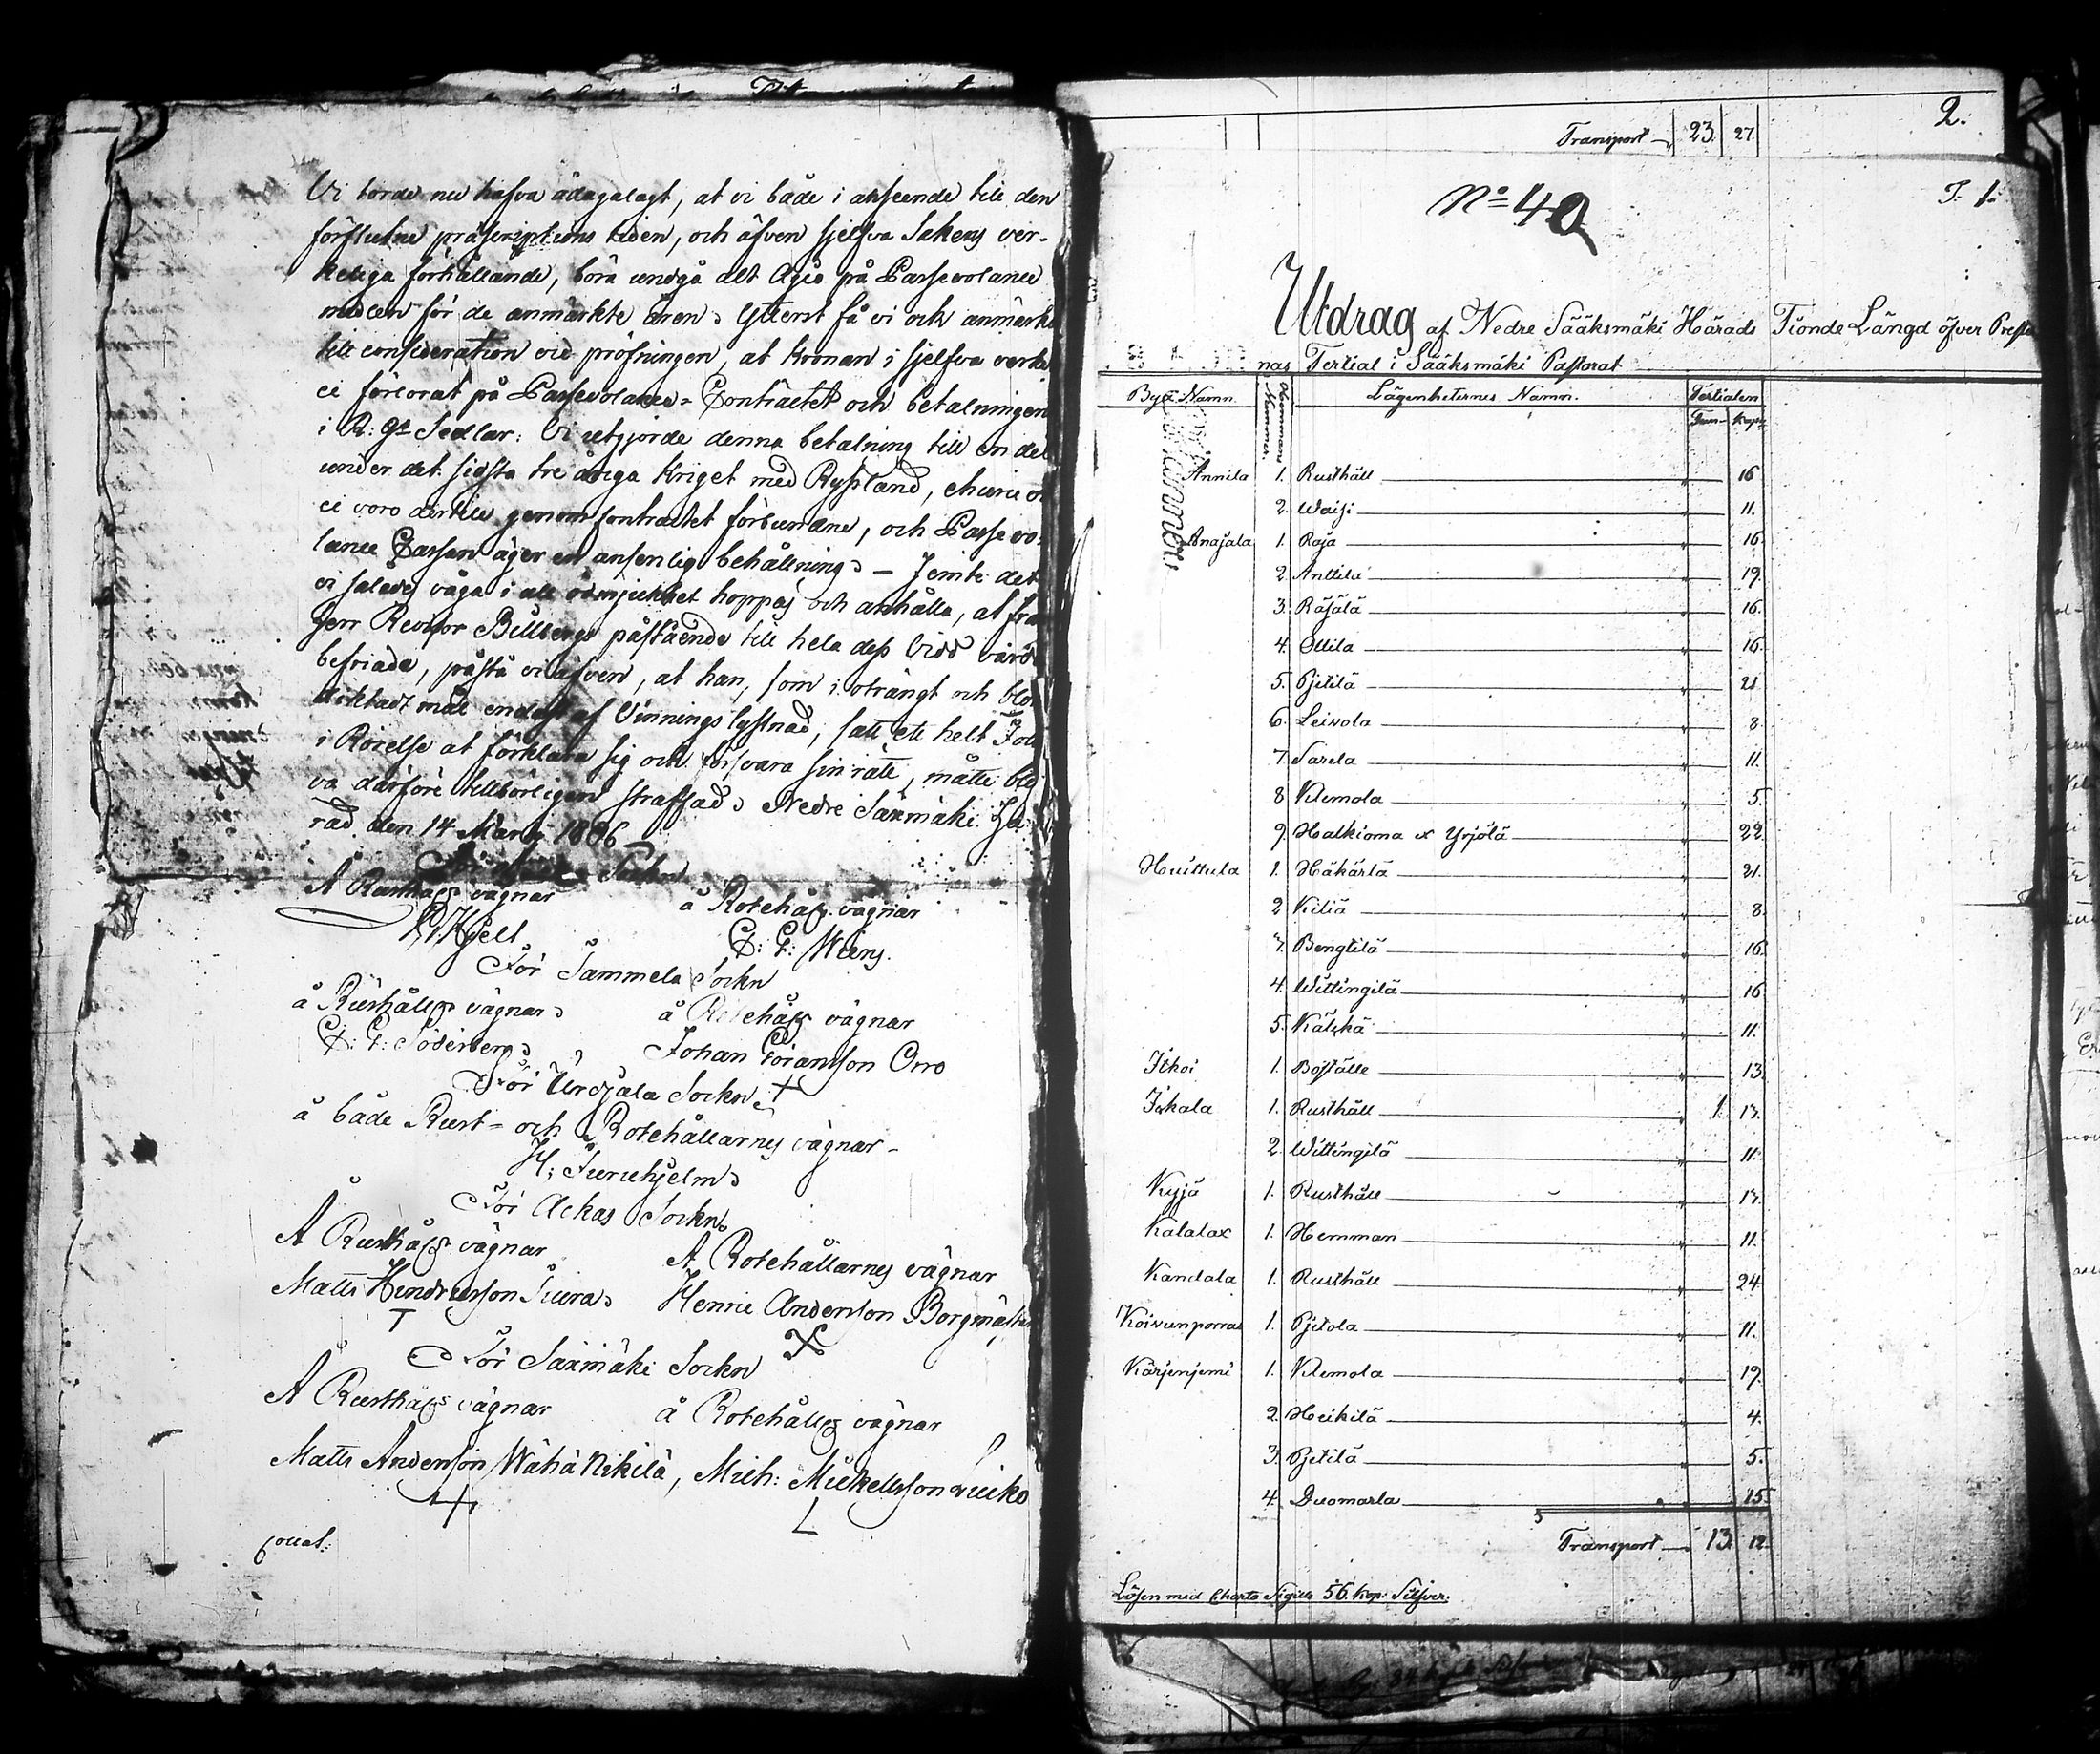 Vi torde nu hafva ådagalagt, at vi både i anseende till den
förflutne præscriptions tiden, och äfven sjelfva Sakens ver-
keliga förhållande, böra undgå det Agio på Passevolance
medlen för de anmärkte åren. Ytterst få vi och anmärka
till consideration vid pröfningen, at Kronan i sjelfva verket
ei förlorat på Passevolance-Contractet och betalningen
i R: Gs Sedlar: Vi utgjorde denna betalning till en del
under det sidsta tre åriga Kriget med Ryssland, ehuru vi
ei voro dertill genom Contractet förbundne, och Passevo-
lance Cassan äger en ansenlig behållning. – Jemte det
vi således våga i all ödmjukhet hoppas och anhålla, at från
Herr Revisor Billbergs påstående till hela dess vidd varda
befriade, påstå vi äfven, at han, som i otrångt och
mål endast af Vinnings lystnad, satt ett helt
i Rörelse at förklara sig och försvara sin rätt, måtte bli-
va därföre tillbörligen straffad. Nedre Saxmäki Hä-
rad den 14 Martij 1806
Sockn
Å Rusthålls vägnar
å Rotehålls vägnar
Hjelt
C: G: Weens.
För Tammela Sockn
å Rusthålls vägnar
å Rotehålls vägnar
C: G: Söderberg
Johan Göransson Orro
För Urdjala Sockn
å både Rust- och Rotehållarnes vägnar
H: Furuhjelm
För Ackas Sockn
Å Rusthålls vägnar
Å Rotehållarnes vägnar
Matts Hindersson Juura
Henric Andersson Borgmästar
För Saxmäki Sockn
Å Rusthålls vägnar
å Rotehålls vägnar
Matts Andersson Wähä Nikilä, Mich: Mickellsson
2.
Transport 23. 27.
No 40
T. 1.
Utdrag af Nedre Sääksmäki Härads Tionde Längd öfver Preste
nas Tertial i Sääksmäki Pastorat
Bya Namn. Hemmans Nummer. Lägenheternes Namn. Tertialen
Tun- Kapp
Annila 1. Rusthåll „ 16
2. Waisi „ 11.
Anajala 1. Raja „ 16.
2. Anttila „ 19.
3. Räjälä „ 16.
4. Ollila „ 16.
5. Pjetilä „ 21
6. Leivola „ 8.
7. Sarela „ 11.
8 Klemola „ 5.
9. Halkioma & Yrjölä „ 22.
Huittula 1. Häkärlä „ 21.
2 Kiliä „ 8.
3. Bengtilä „ 16.
4. Wittingilä „ 16
5. Kätkä „ 11.
Ithoi 1. Boställe „ 13.
Jskala 1. Rusthåll 1. 13.
2. Wittingilä „ 11.
Kyjä 1. Rusthåll „ 13.
Kalalax 1. Hemman „ 11.
Kandala 1. Rusthåll „ 24
Koivunporras 1. Pjetola „ 11.
Kärjenjemi 1. Klemola „ 19.
2. Heikilä „ 4.
3. Pjetilä „ 5.
4. Duomarla „ 15.
Transport 13. 12.
Lösen med Charta Sigill. 56. kop: Silfver.